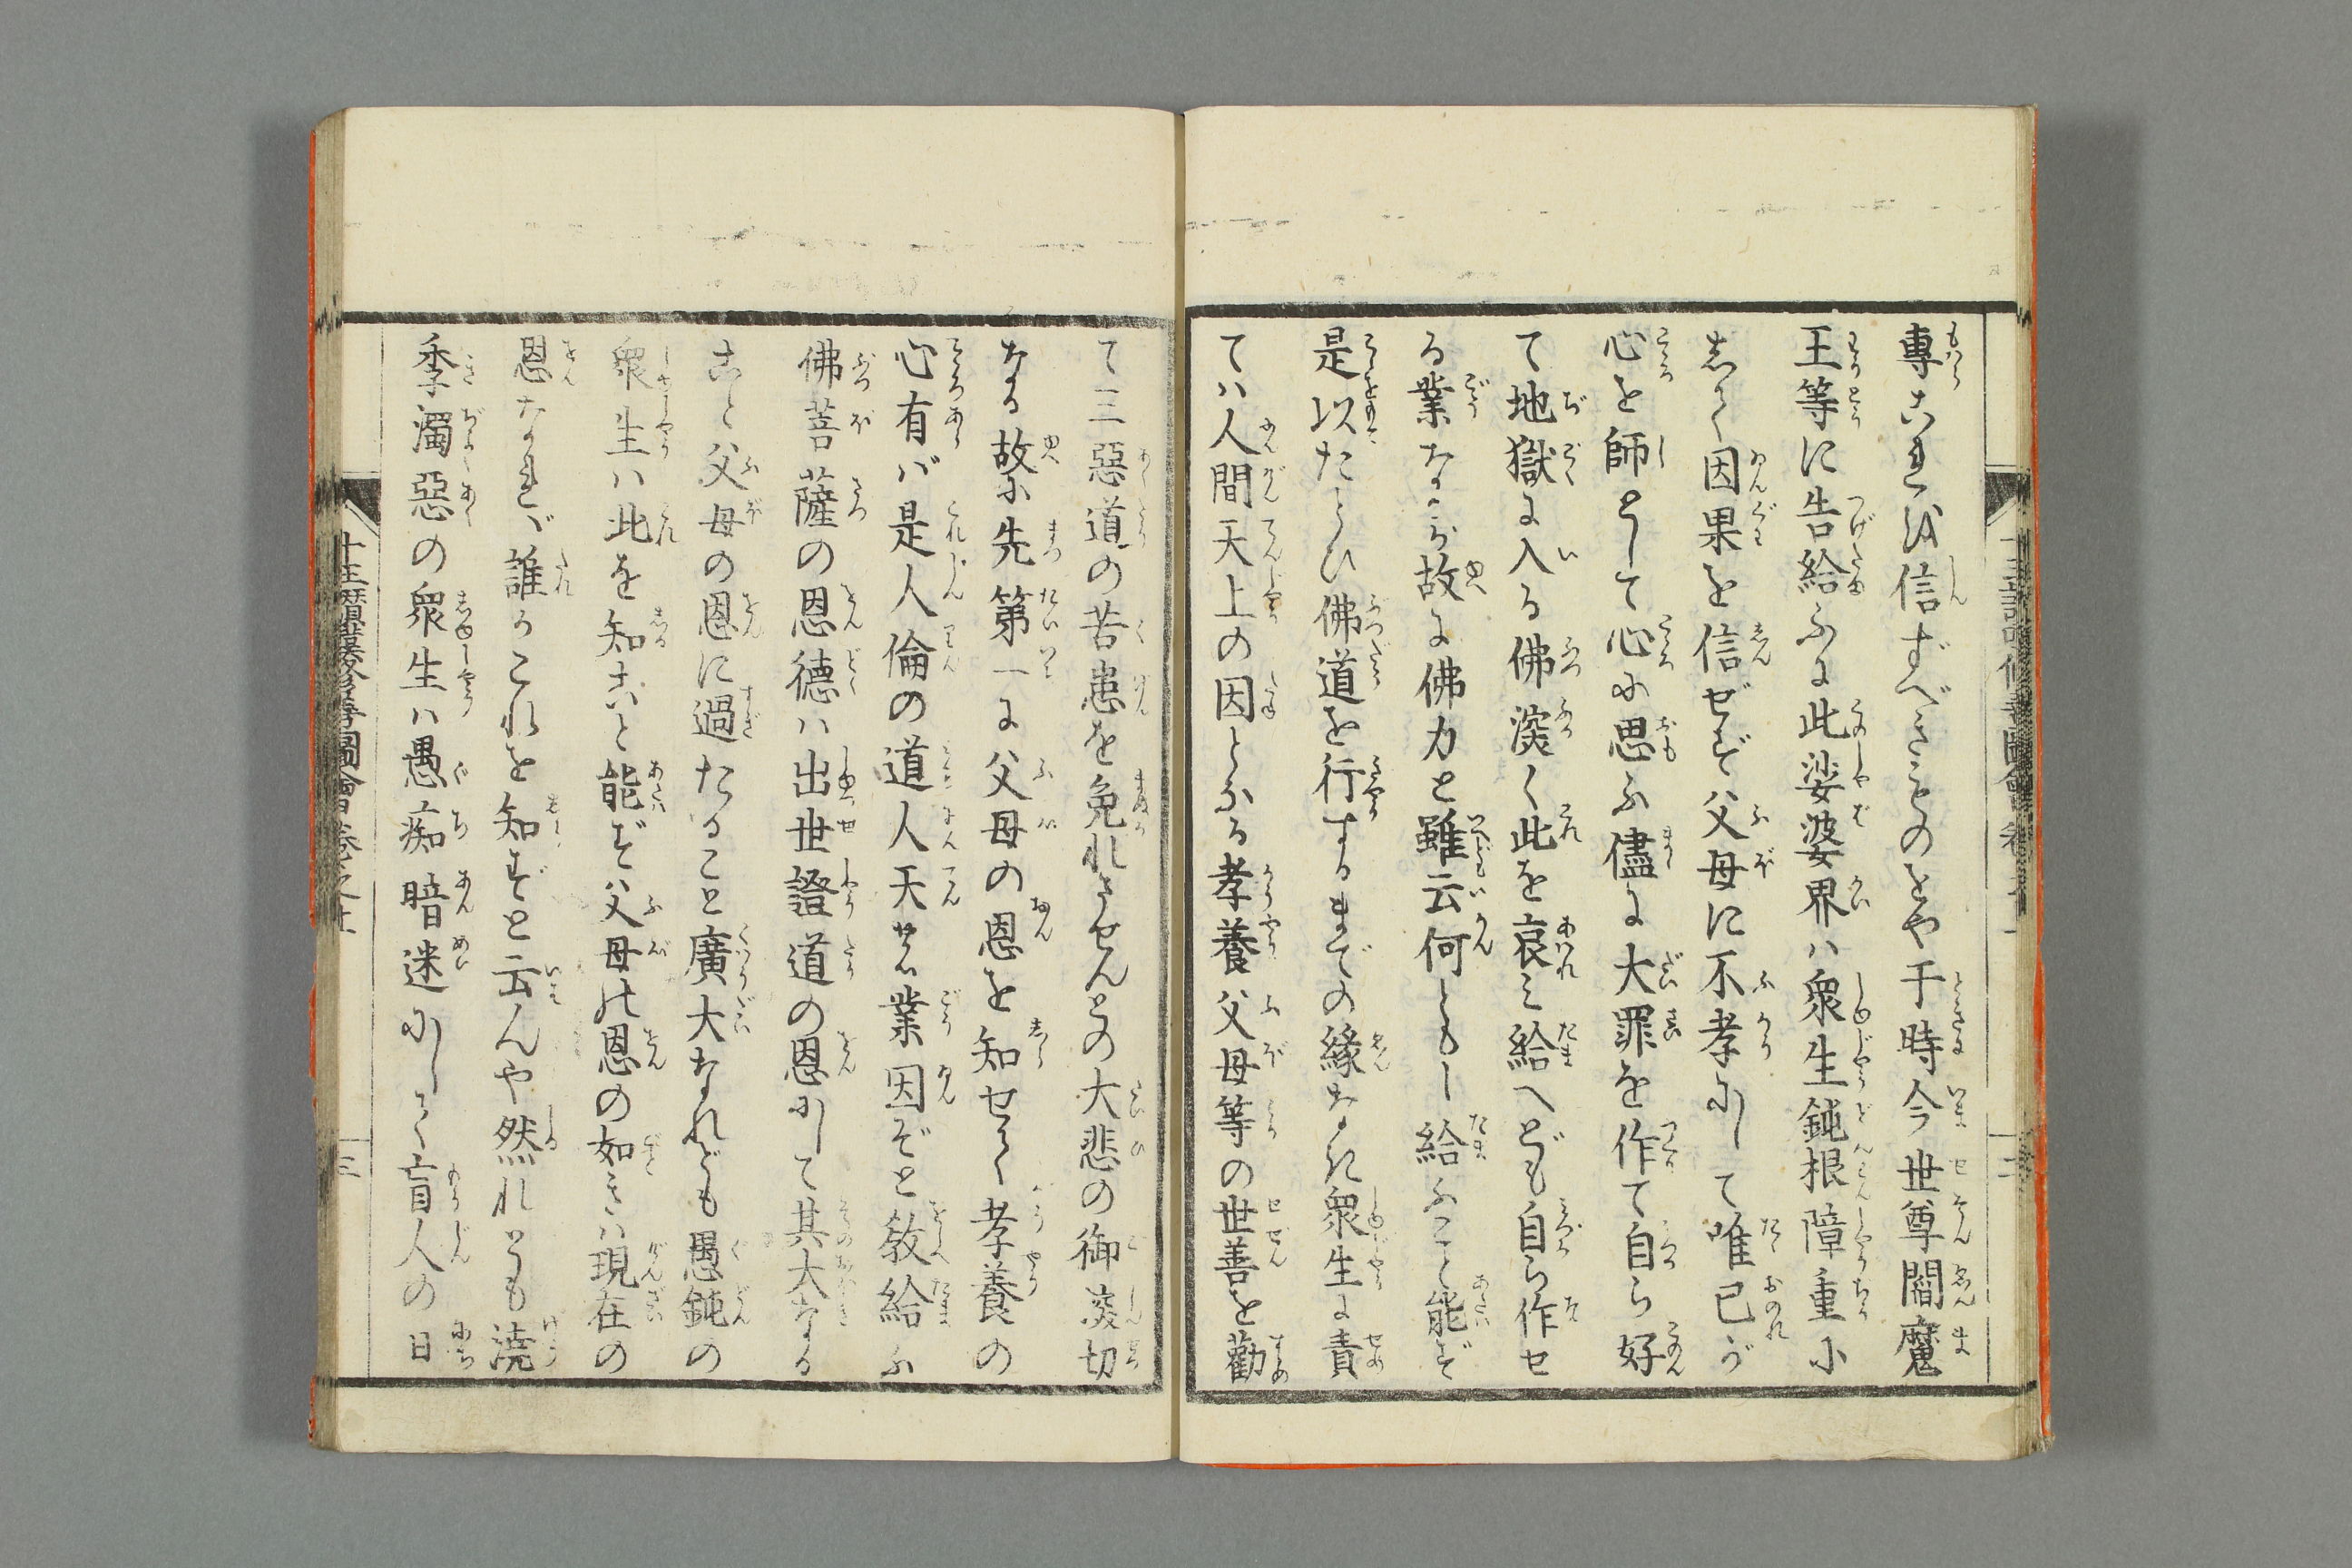 專これ以信ずべきものをや于時今世尊閻魔
王等に告給ふに此娑婆界ハ衆生鈍根障重に
しく因果を信ぜず父母に不孝にして唯已が
心を師として心に思ふ儘に大罪を作て自ら好
て地獄に入る佛深く此を哀ミ給へども自ら作せ
る業なるが故に佛力と雖云何ともし給ふこと能ず
是以たとひ佛道を行ずるまでの縁なき衆生に責
てハ人間天上の因となる孝養父母等の世善を勸
て三惡道の苦患を免れさせんとの大悲の御深切
なる故に先第一に父母の恩を知せて孝養の
心有バ是人倫の道人天の業因ぞと敎給ふ
佛菩薩の恩德ハ出世證道の恩にして其大なる
こと父母の恩に過たること廣大なれども愚鈍の
衆生ハ此を知こと能ず父母の恩の如きハ現在の
恩なれバ誰かこれを知ずと云んや然れとも澆
季濁惡の衆生ハ愚痴暗迷にして盲人の日
十王讃嘆修善圖會卷之上
三